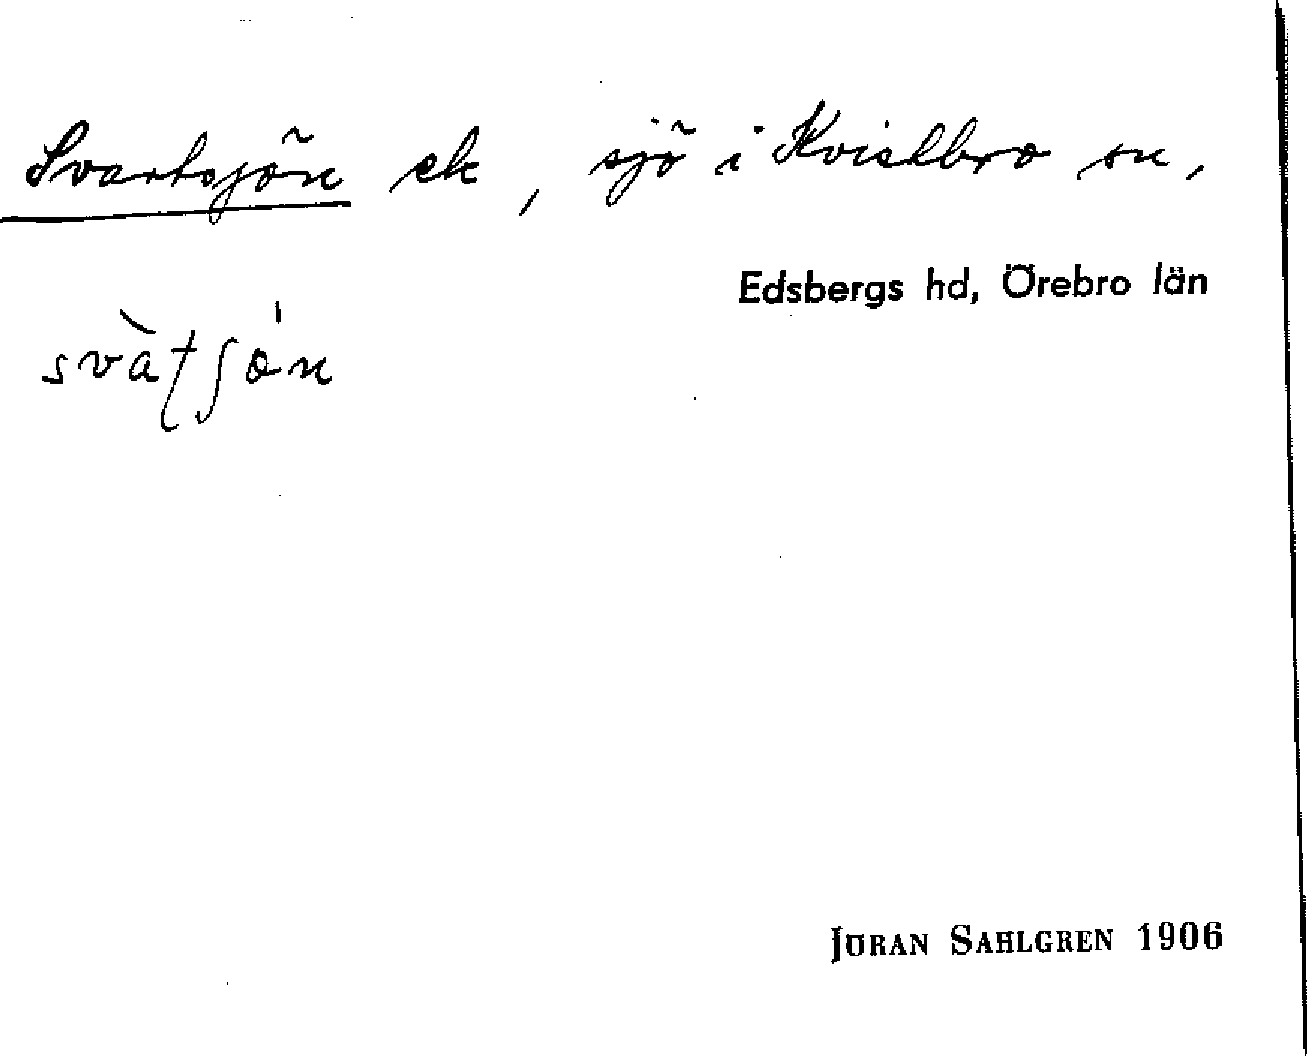 Svartsjön ek, sjö i Kvistbro sn,
Edsbergs hd, Örebro län
svàtʃǿn
JÖRAN SAHLGREN 1906